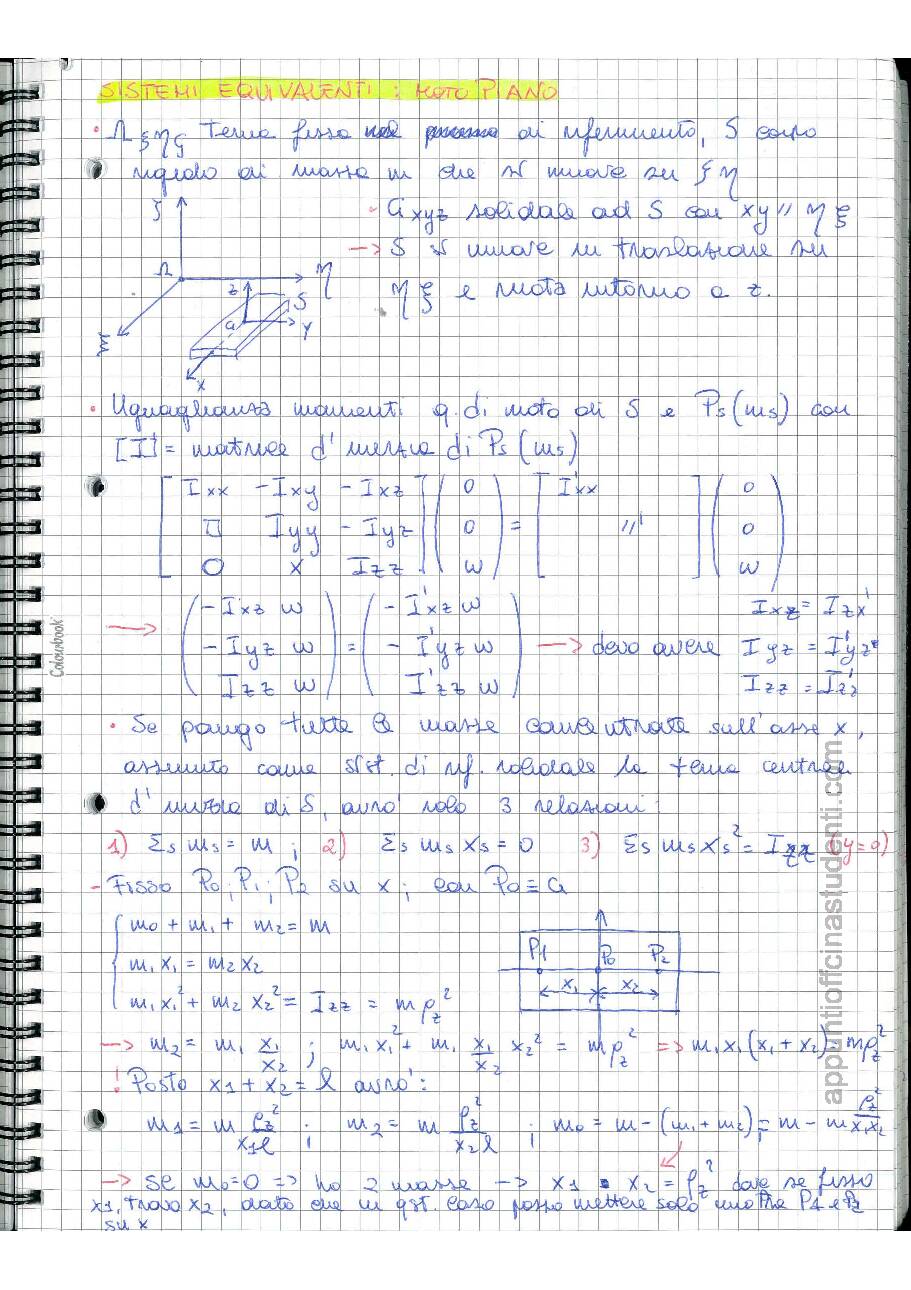 SISTEMI EQUIVALENTI : MOTO PIANO
• Ωξηζ Terna fissa di riferimento, S corpo
rigido di massa m che si muove su ξ η
- Gxyz solidale ad S con xy // η ξ
→ S si muove in traslazione su
η ξ e ruota intorno a z.
ζ
Ω
η
ξ
z
S
G
y
x
• Uguaglianza momenti q. di moto di S e Ps (ms) con
[I'] = matrice d'inerzia di Ps (ms)
[Ixx -Ixy -Ixz] (0) = [I'xx ] (0)
[□ Iyy -Iyz] (0) [ //' ] (0)
[O x Izz] (ω) [ ] (ω)
→ (-Ixz ω) = (-I'xz ω) Ixz = Izx'
(-Iyz ω) (-I'yz ω) → devo avere Iyz = I'yz
(Izz ω) (I'zz ω) Izz = I'zz
• Se pongo tutte le masse concentrate sull'asse x,
assunto come sist. di rif. solidale la terna centrale
d'inerzia di S, avrò solo 3 relazioni:
1) Σs ms = m ; 2) Σs ms xs = 0 3) Σs ms xs² = Izz (y=0)
- Fisso P0 ; P1 ; P2 su x ; con P0 ≡ G
m0 + m1 + m2 = m
m1 x1 = m2 x2
m1 x1² + m2 x2² = Izz = m ρz²
P1 P0 P2
x1 x2
→ m2 = m1 x1/x2 ; m1 x1² + m1 x1/x2 x2² = mρz² => m1 x1 (x1 + x2) = mρz²
! Posto x1 + x2 = l avrò:
m1 = m ρz²/x1l ; m2 = m ρz²/x2l ; m0 = m - (m1 + m2) = m - m ρz²/x1x2
→ Se m0 = 0 => ho 2 masse → x1 • x2 = ρz² dove se fisso
x1, trovo x2, dato che in qst. caso posso mettere solo uno tra P1 e P2
su x
Colourbook
appuntiofficinastudenti.com